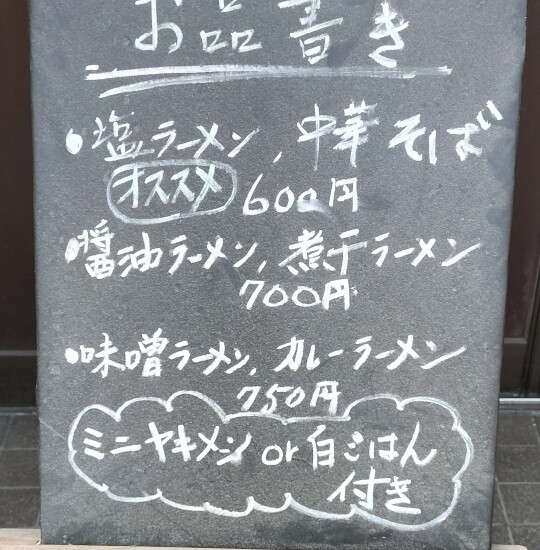 お品書き
•塩ラーメン, 中華そば
オススメ 600円
•醤油ラーメン, 煮干ラーメン
700円
•味噌ラーメン, カレーラーメン
750円
ミニヤキメン or 白ごはん
付き